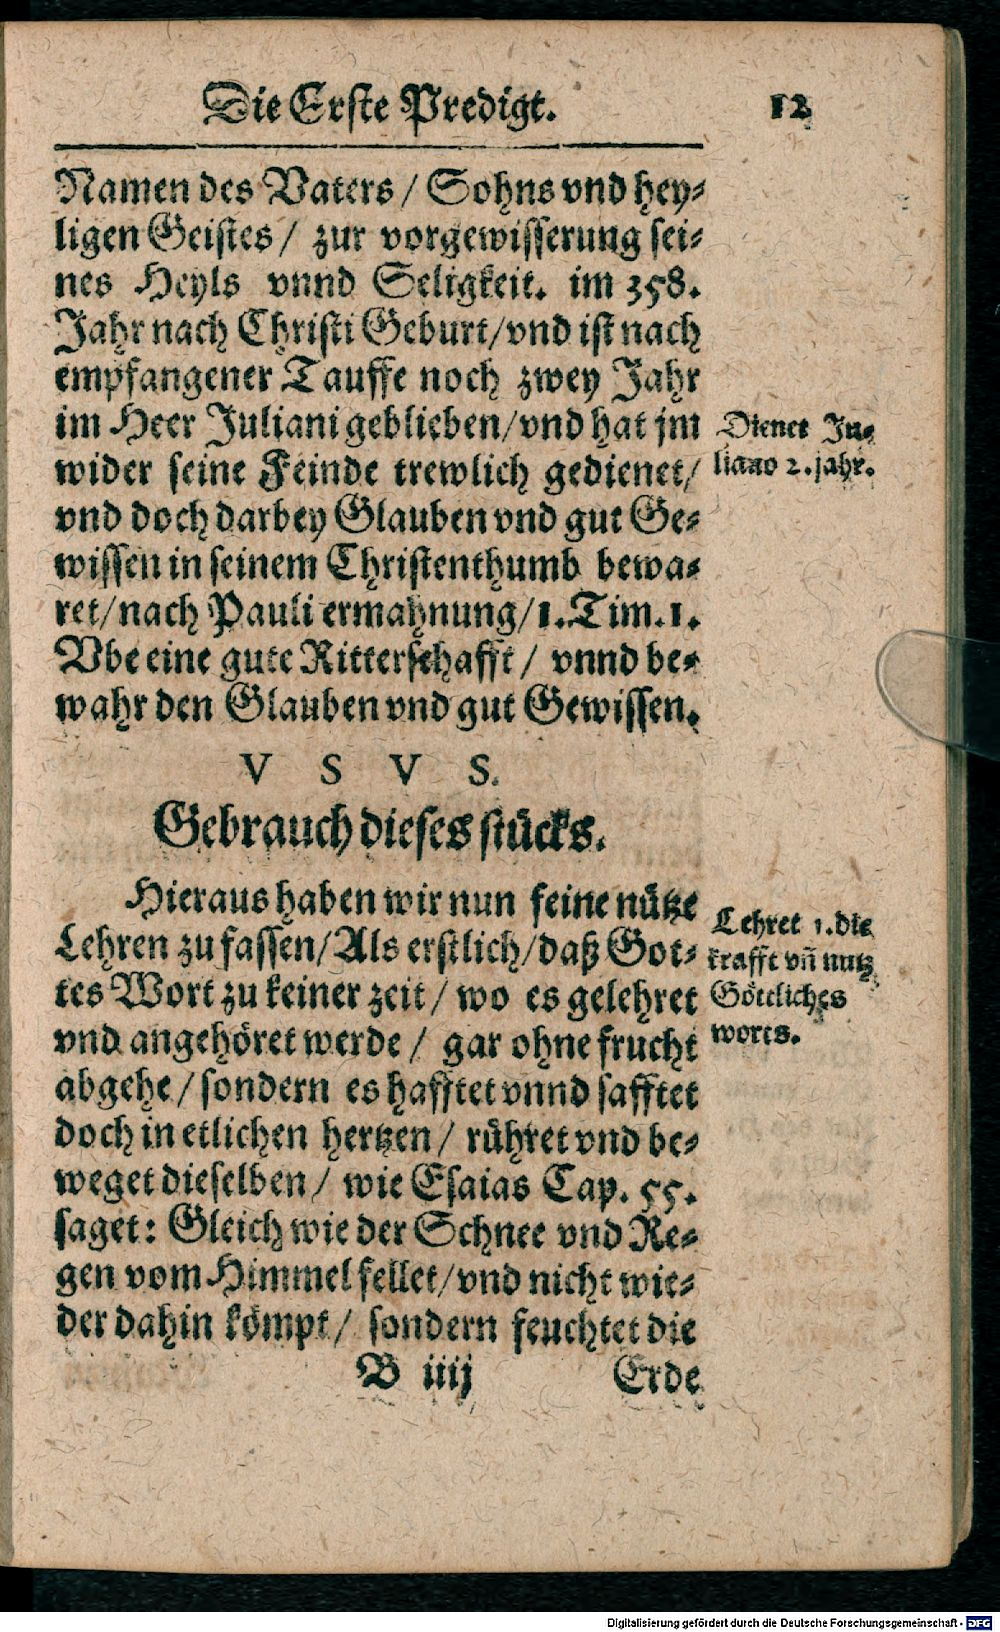 Die Erste Predigt. 12
Namen des Vaters / Sohns vnd hey-
ligen Geistes / zur vorgewisserung sei-
nes Heyls vnnd Seligkeit. im 358.
Jahr nach Christi Geburt/vnd ist nach
empfangener Tauffe noch zwey Jahr
im Heer Juliani geblieben/vnd hat jm
wider seine Feinde trewlich gedienet/
vnd doch darbey Glauben vnd gut Ge-
wissen in seinem Christenthumb bewa-
ret/nach Pauli ermahnung/1.Tim.1.
Vbe eine gute Ritterschafft / vnnd be-
wahr den Glauben vnd gut Gewissen.
Dienet Ju-
liano 2. jahr.
V S V S.
Gebrauch dieses stücks.
Hieraus haben wir nun feine nütze
Lehren zu fassen/Als erstlich/daß Got-
tes Wort zu keiner zeit / wo es gelehret
vnd angehöret werde / gar ohne frucht
abgehe / sondern es hafftet vnnd safftet
doch in etlichen hertzen / rühret vnd be-
weget dieselben / wie Esaias Cap. 55.
saget: Gleich wie der Schnee vnd Re-
gen vom Himmel fellet/vnd nicht wie-
der dahin kömpt / sondern feuchtet die
Lehret 1. die
krafft vñ nutz
Göttliches
worts.
B iiij Erde
Digitalisierung gefördert durch die Deutsche Forschungsgemeinschaft - DFG